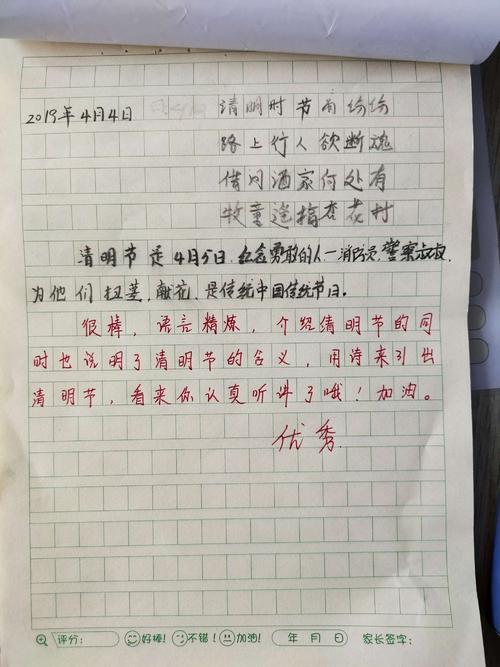 2019年4月4日
清明时节雨纷纷
路上行人欲断魂
借问酒家何处有
牧童遥指杏花村
清明节是4月5日.纪念勇敢的人一消防员,警察叔叔,
为他们扫墓,献花,是传统中国传统节日。
很棒，语言精炼，介绍清明节的同
时也说明了清明节的含义，用诗来引出
清明节，看来你认真听讲了哦！加油。
优秀
评分: 好棒! 不错! 加油! 年 月 日 家长签字: